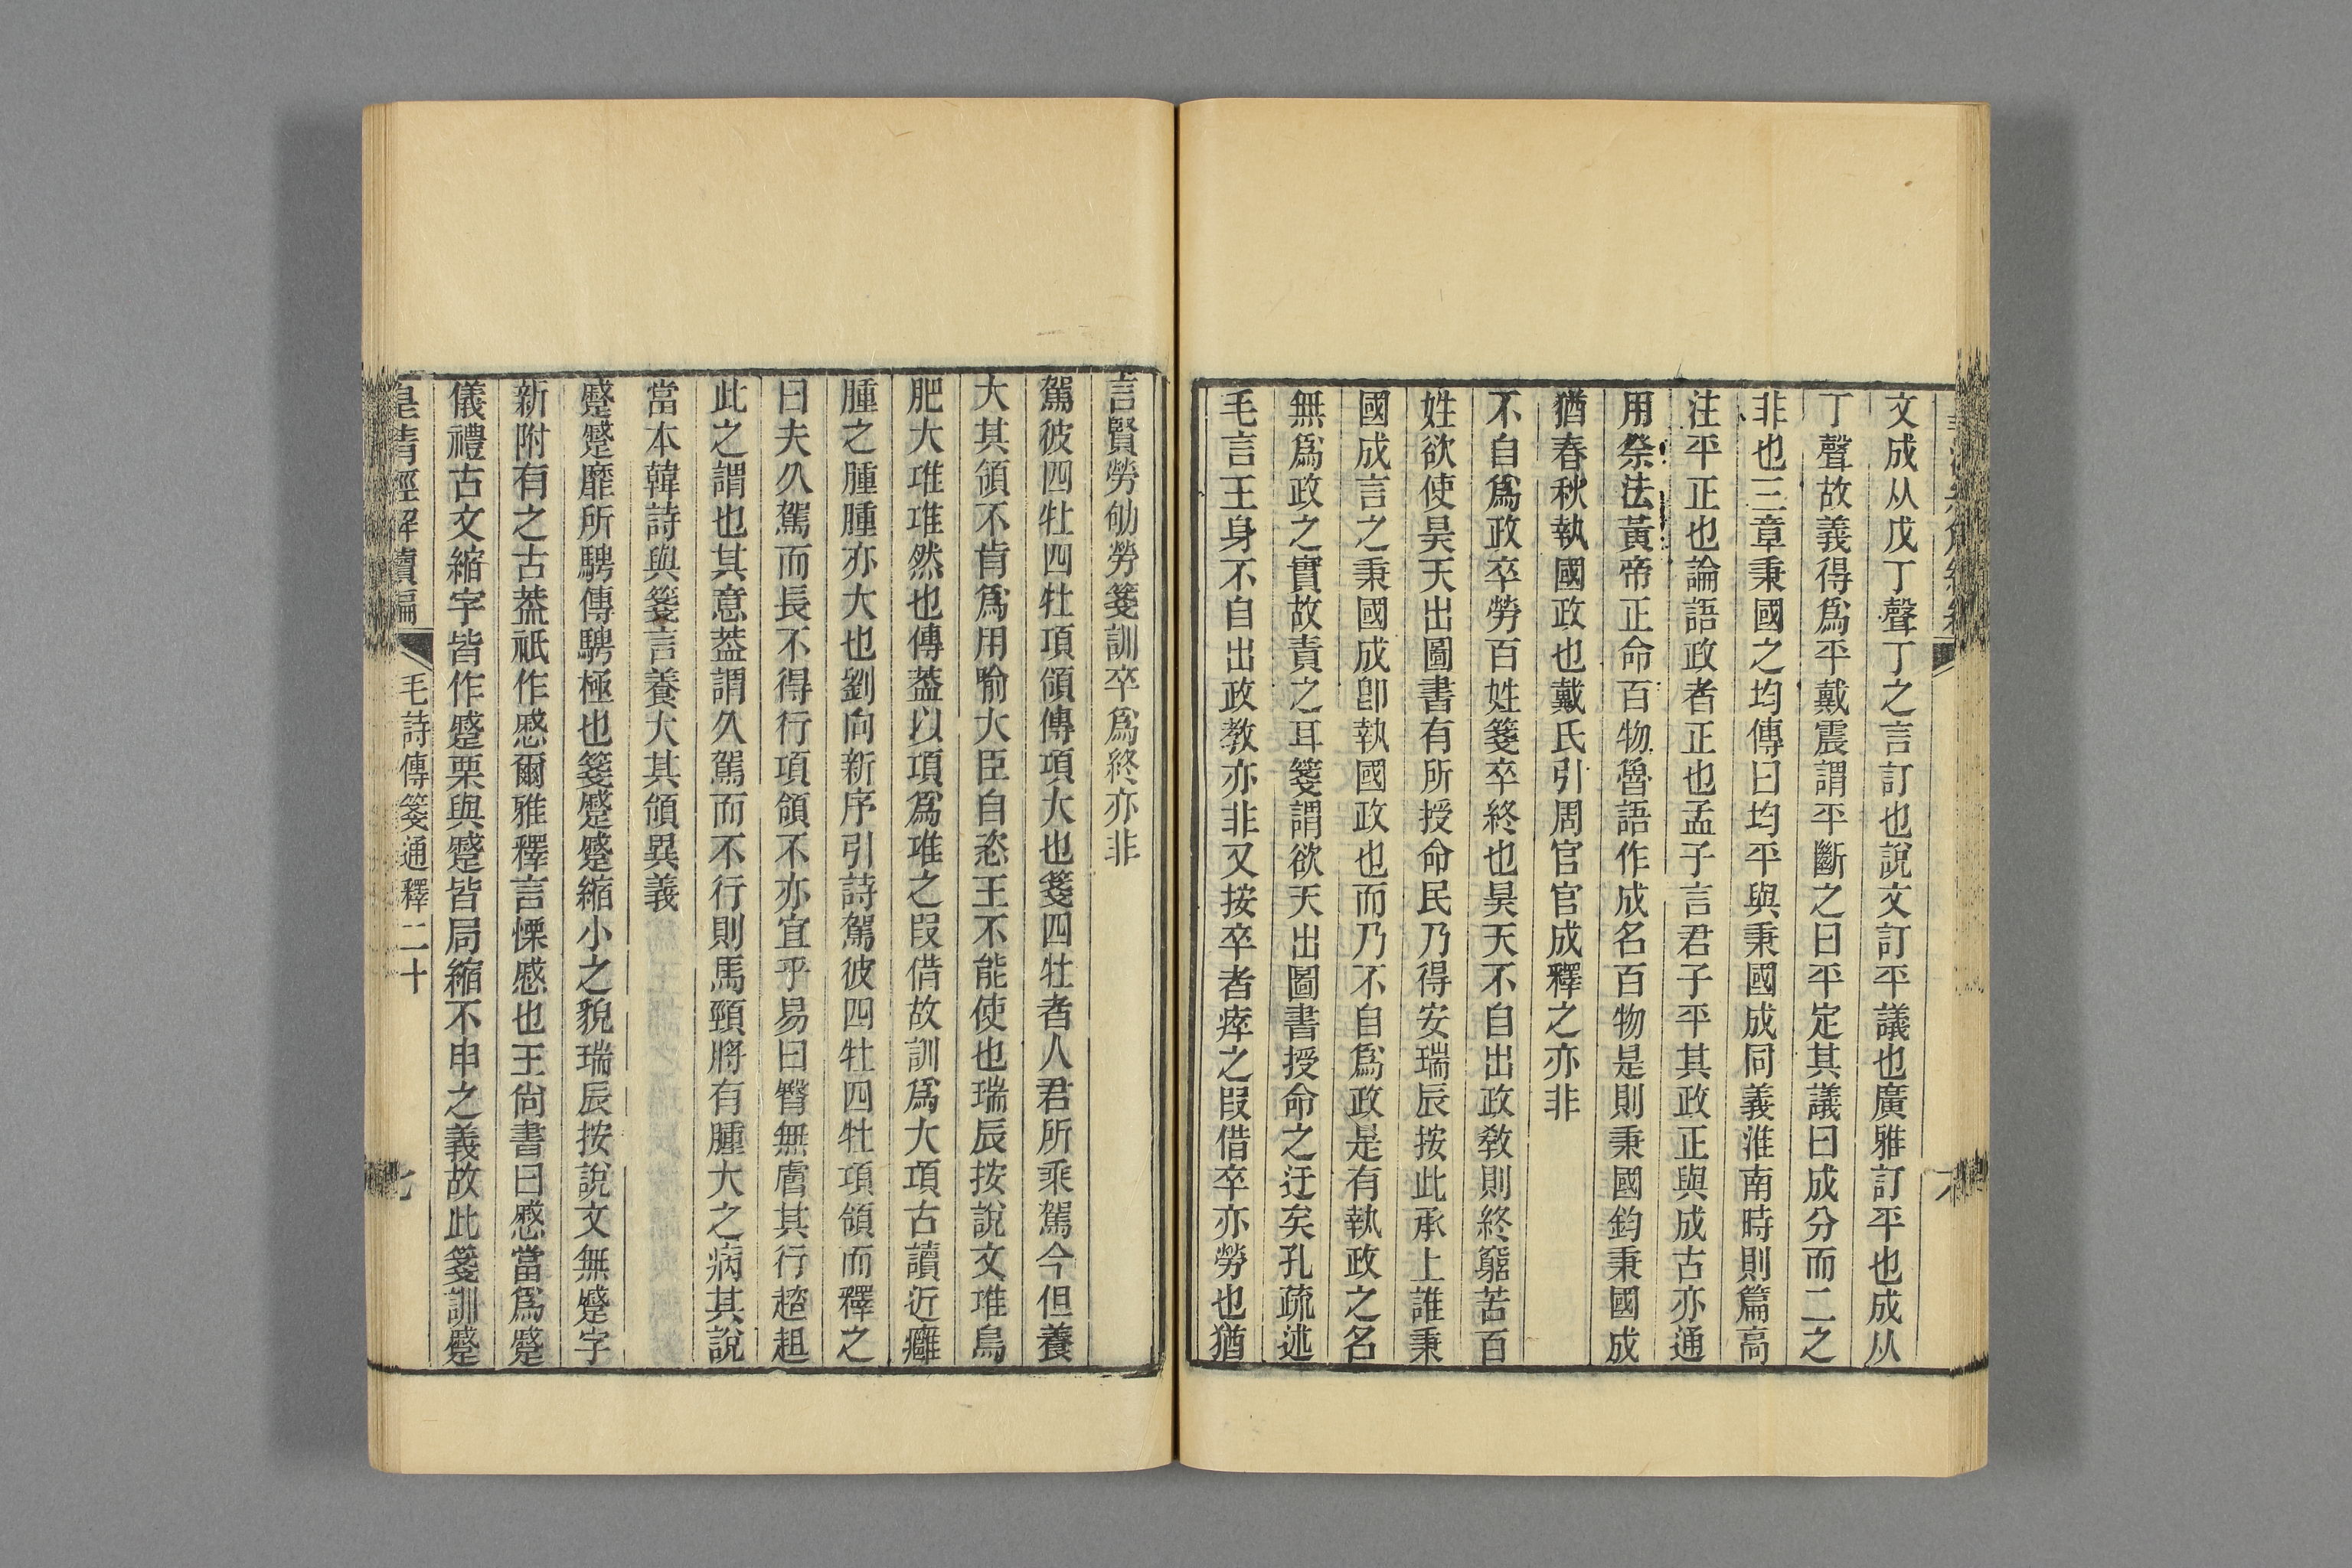 文成从戊丁聲丁之言訂也說文訂平議也廣雅訂平也成从
丁聲故義得爲平戴震謂平斷之曰平定其議曰成分而二之
非也三章秉國之均傳曰均平與秉國成同義淮南時則篇高
注平正也論語政者正也孟子言君子平其政正與成古亦通
用祭法黃帝正命百物魯語作成名百物是則秉國鈞秉國成
猶春秋執國政也戴氏引周官官成釋之亦非
不自爲政卒勞百姓箋卒終也昊天不自出政敎則終窮苦百
姓欲使昊天出圖書有所授命民乃得安瑞辰按此承上誰秉
國成言之秉國成卽執國政也而乃不自爲政是有執政之名
無爲政之實故責之耳箋謂欲天出圖書授命之迂矣孔疏述
毛言王身不自出政教亦非又按卒者瘁之叚借卒亦勞也猶
言賢勞劬勞箋訓卒爲終亦非
駕彼四牡四牡項領傳項大也箋四牡者人君所乘駕今但養
大其領不肯爲用喻大臣自恣王不能使也瑞辰按說文琟鳥
肥大琟琟然也傳葢以項爲琟之叚借故訓爲大項古讀近癰
腫之腫腫亦大也劉向新序引詩駕彼四牡四牡項領而釋之
曰夫久駕而長不得行項領不亦宜乎易曰臀無膚其行趑趄
此之謂也其意葢謂久駕而不行則馬頸將有腫大之病其說
當本韓詩與箋言養大其領異義
蹙蹙靡所騁傳騁極也箋蹙蹙縮小之貌瑞辰按說文無蹙字
新附有之古葢祇作慼爾雅釋言慄慼也王尙書曰慼當爲蹙
儀禮古文縮字皆作蹙栗與蹙皆局縮不申之義故此箋訓蹙
皇清經解續編
毛詩傳箋通釋二十
七